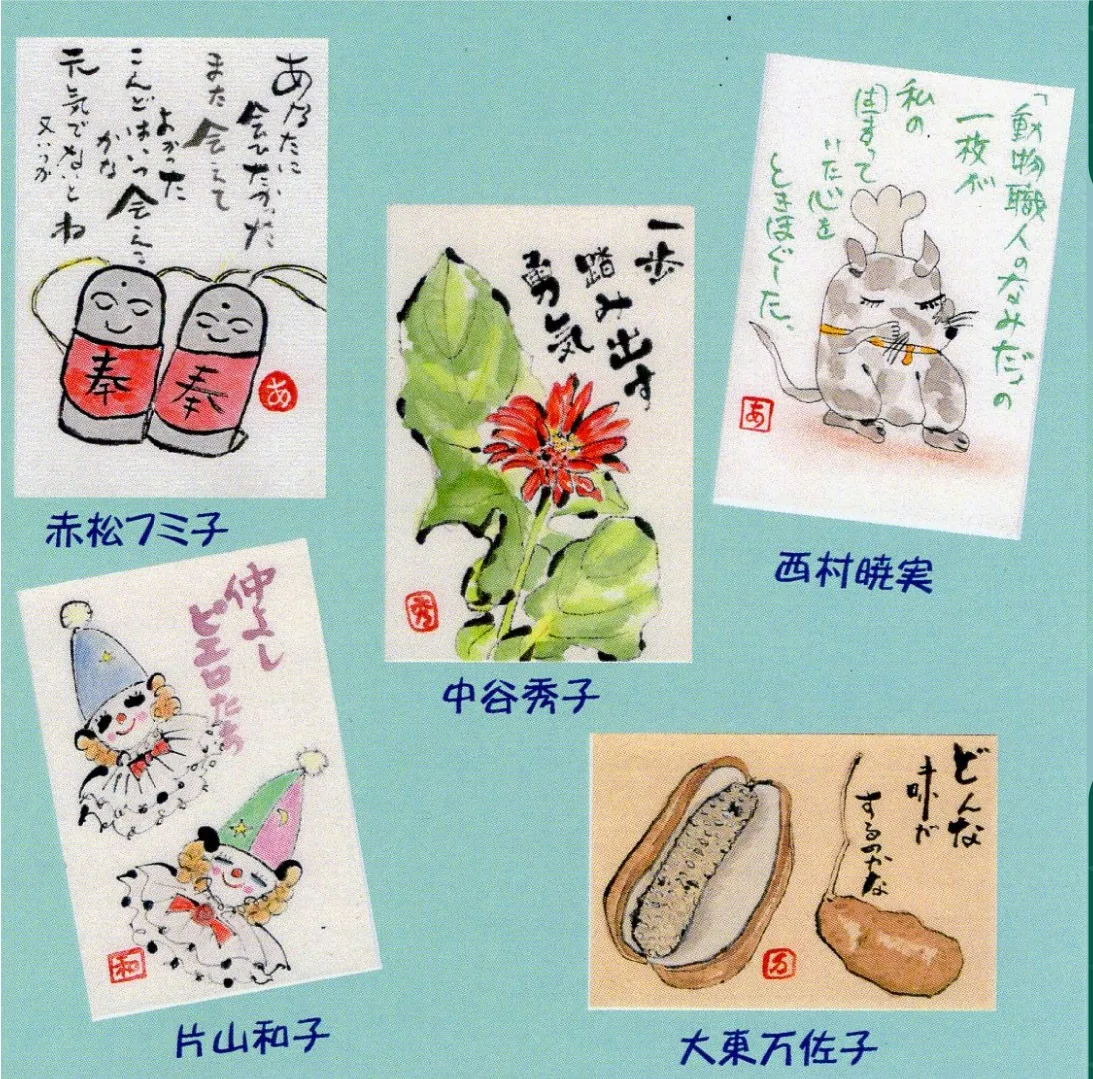 あなたに
会ひたかった
また会えて
よかった
こんどはいつ会える
かな
元気でないとね
又いつか
奉
奉
あ
赤松フミ子
一歩
踏み出す
勇気
秀
中谷秀子
「動物職人のなみだ」の
一枚が
私の
固まって
いた心を
ときほぐした、
あ
西村暁実
仲よし
ピエロたち
和
片山和子
どんな
味が
するのかな
万
大東万佐子